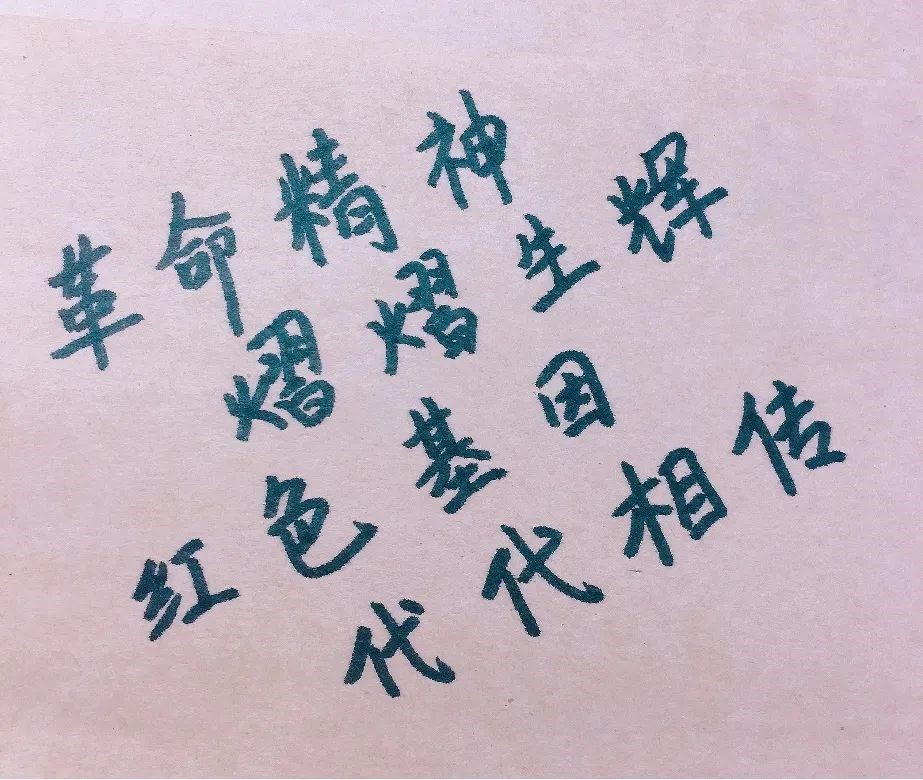 革命精神
熠熠生辉
红色基因
代代相传